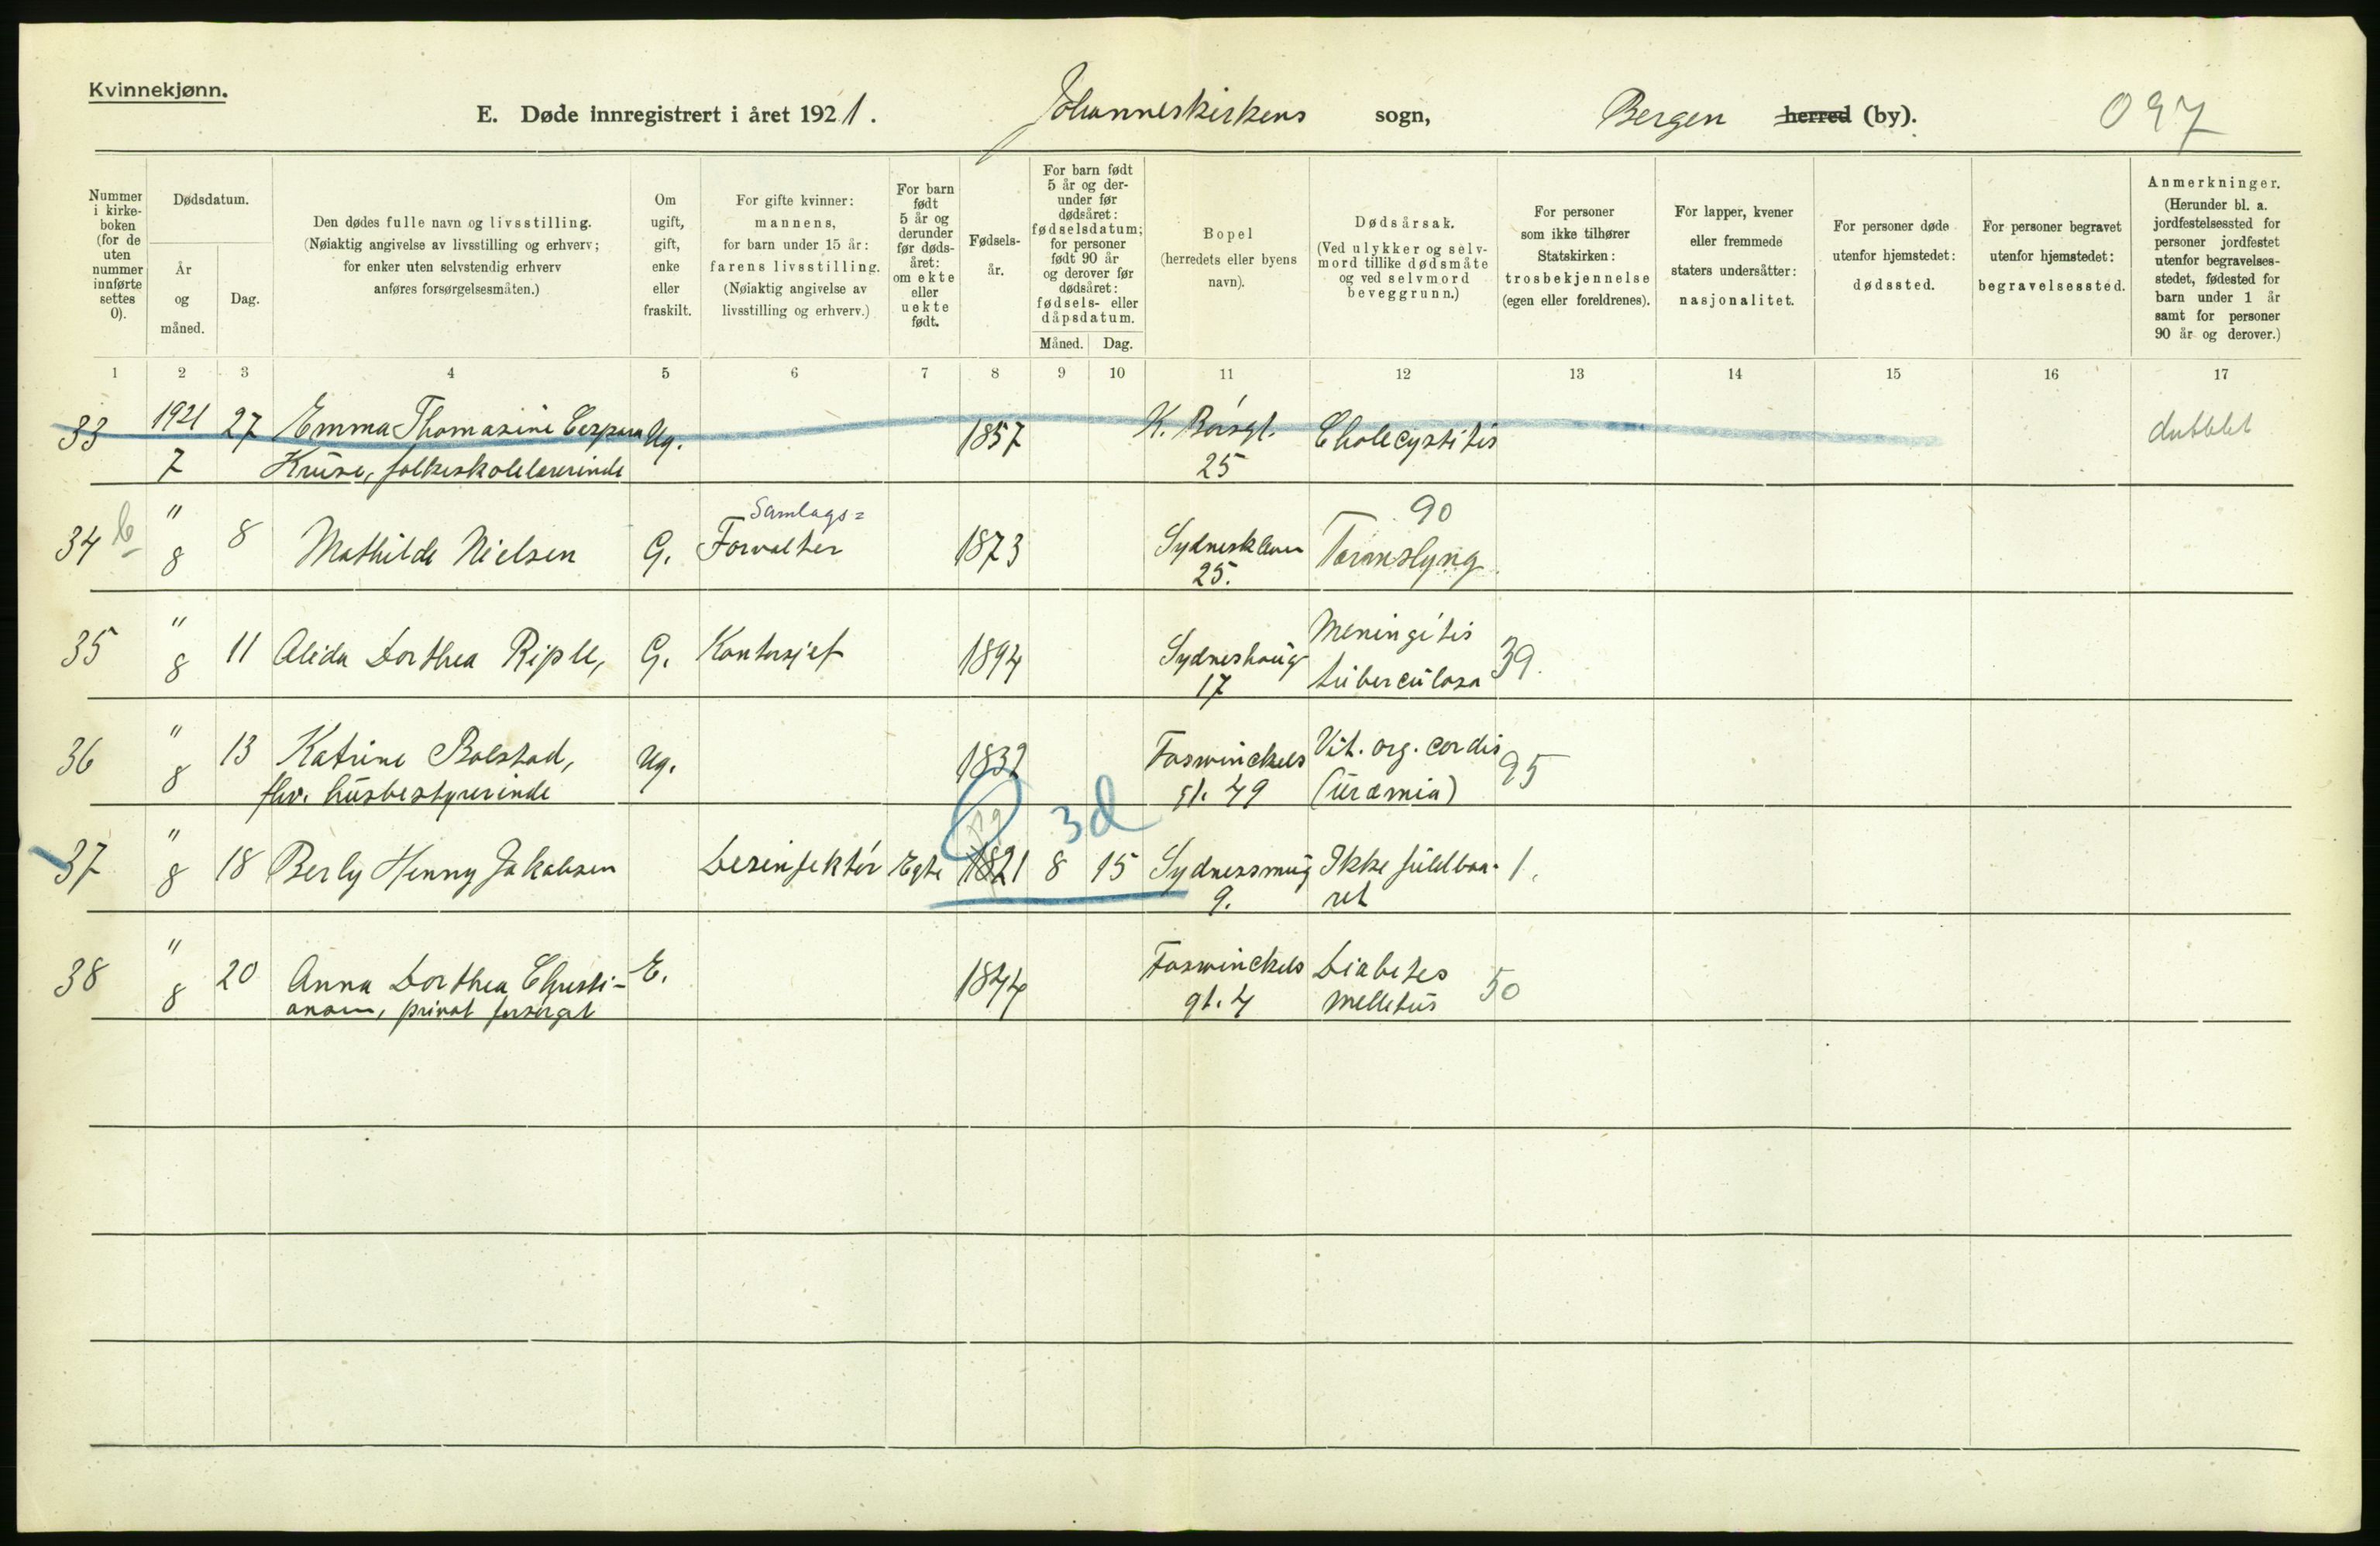 Kvinnekjønn.
E. Døde innregistrert i året 1921. Johanneskirkens sogn, Bergen herred (by). 097
Nummer i kirkeboken (for de uten nummer innførte settes 0).
Dødsdatum.
År og måned.
Dag.
Den dødes fulle navn og livsstilling.
(Nøiaktig angivelse av livsstilling og erhverv;
for enker uten selvstendig erhverv
anføres forsørgelsesmåten.)
Om ugift, gift, enke eller fraskilt.
For gifte kvinner:
mannens,
for barn under 15 år:
farens livsstilling.
(Nøiaktig angivelse av
livsstilling og erhverv.)
For barn født 5 år og derunder før dødsåret: om ekte eller uekte født.
Fødselsår.
For barn født 5 år og derunder før dødsåret: fødselsdatum; for personer født 90 år og derover før dødsåret: fødsels- eller dåpsdatum.
Måned. Dag.
Bopel
(herredets eller byens
navn).
Dødsårsak.
(Ved ulykker og selvmord tillike dødsmåte
og ved selvmord
beveggrunn.)
For personer
som ikke tilhører
Statskirken:
trosbekjennelse
(egen eller foreldrenes).
For lapper, kvener
eller fremmede
staters undersåtter:
nasjonalitet.
For personer døde
utenfor hjemstedet:
dødssted.
For personer begravet
utenfor hjemstedet:
begravelsessted.
Anmerkninger.
(Herunder bl. a.
jordfestelsessted for
personer jordfestet
utenfor begravelses-
stedet, fødested for
barn under 1 år
samt for personer
90 år og derover.)
1 2 3 4 5 6 7 8 9 10 11 12 13 14 15 16 17
33 1921 27 Emma Thomasine Caspara Ug. 1857 K. Børsgt. Cholecystitis dubblet
7 Kruse, folkeskolelærerinde 25
" Samlags= 90
34 b 8 8 Mathilde Nielsen G. Forvalter 1873 Sydneskleven Tarmslyng
25.
" Meningitis
35 8 11 Alida Dorthea Riple, G. Kontorsjef 1894 Sydneshaug tuberculosa 39.
17
36 " 13 Katrine Bolstad, Ug. 1832 Foswinckels Vit. org. cordis 95
8 fhv. husbestyrerinde gt. 49 (uræmia)
3d
37 " 8 18 Berly Henny Jakobsen Desinfektør Egte 1821 8 15 Sydnessmug Ikke fuldbaa- 1.
9. ret
38 " 20 Anna Dorthea Christi- E. 1844 Foswinckels Diabetes 50
8 ansen, privat forsørget gt. 4 mellitus